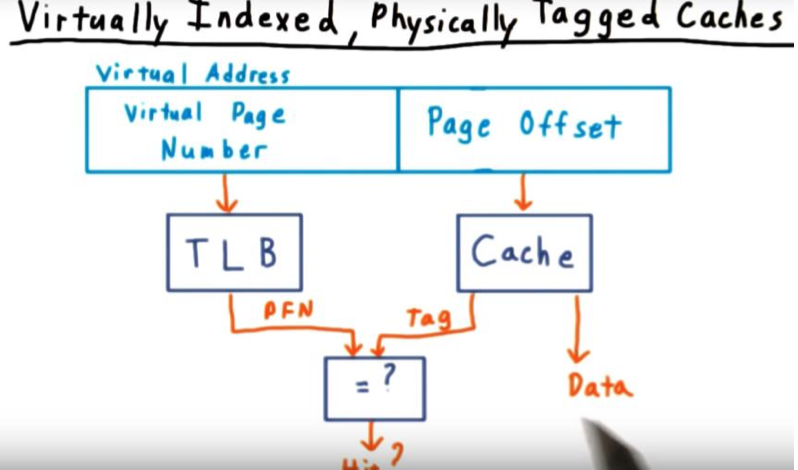 Virtually Indexed, Physically Tagged Caches
Virtual Address
Virtual Page
Number
Page Offset
TLB
Cache
PFN
Tag
= ?
Data
Hit?